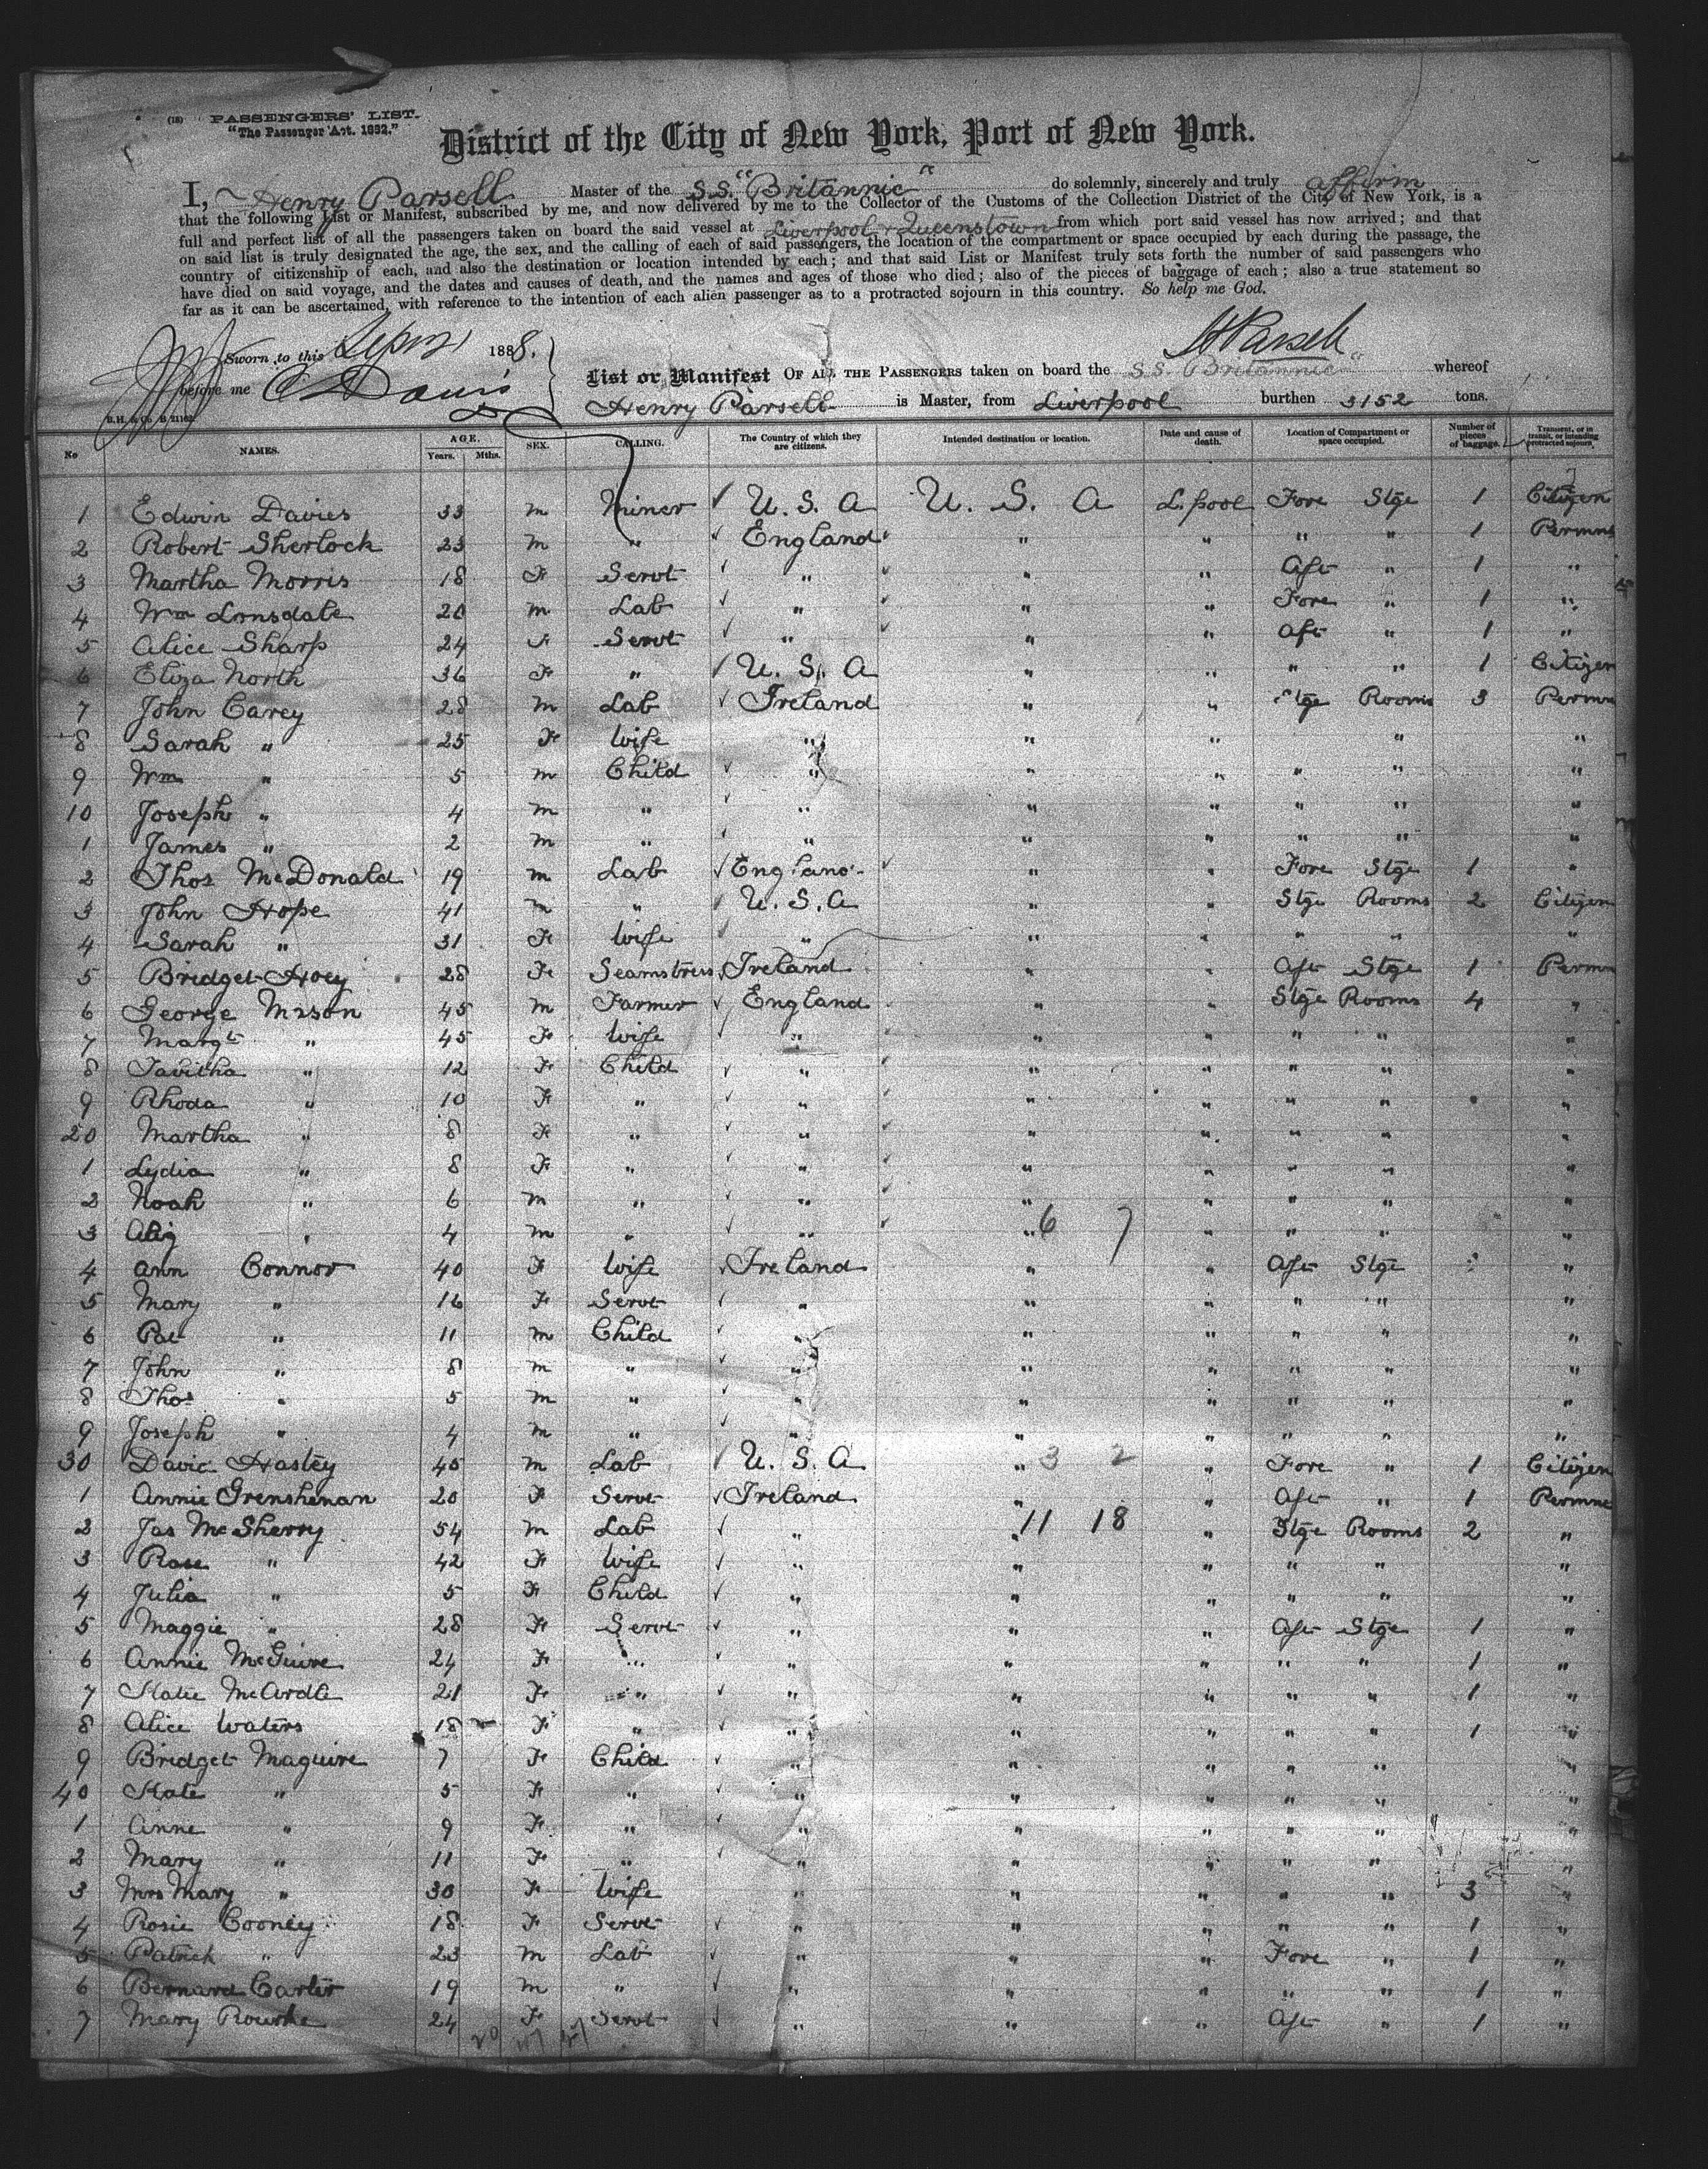 (18) PASSENGERS' LIST.
"The Passenger Act. 1882."
District of the City of New York, Port of New York.
I, Henry Parsell Master of the S.S. "Britannic" do solemnly, sincerely and truly affirm
that the following List or Manifest, subscribed by me, and now delivered by me to the Collector of the Customs of the Collection District of the City of New York, is a
full and perfect list of all the passengers taken on board the said vessel at Liverpool & Queenstown from which port said vessel has now arrived; and that
on said list is truly designated the age, the sex, and the calling of each of said passengers, the location of the compartment or space occupied by each during the passage, the
country of citizenship of each, and also the destination or location intended by each; and that said List or Manifest truly sets forth the number of said passengers who
have died on said voyage, and the dates and causes of death, and the names and ages of those who died; also of the pieces of baggage of each; also a true statement so
far as it can be ascertained, with reference to the intention of each alien passenger as to a protracted sojourn in this country. So help me God.
Sworn to this 1888.
before me C Davis
H Parsell
List or Manifest OF ALL THE PASSENGERS taken on board the S.S. Britannic whereof
Henry Parsell is Master, from Liverpool burthen 3152 tons.
No NAMES. AGE. Years. Mths. SEX. CALLING. The Country of which they are citizens. Intended destination or location. Date and cause of death. Location of Compartment or space occupied. Number of pieces of baggage. Transient, or in transit, or intending protracted sojourn
1 Edwin Davies 33 m Miner U.S.A U.S.A L.pool Fore Stge 1 Citizen
2 Robert Sherlock 23 m " England " " " " 1 Permn
3 Martha Morris 18 F Servt " " " Aft " 1 "
4 Wm Lonsdale 20 m Lab " " " Fore " 1 "
5 Alice Sharp 24 F Servt " " " Aft " 1 "
6 Eliza North 36 F " U.S.A " " " " 1 Citizen
7 John Carey 28 m Lab Ireland " " Stge Rooms 3 Permn
8 Sarah " 25 F Wife " " " " "
9 Wm " 5 m Child " " " " " "
10 Joseph " 4 m " " " " " " "
1 James " 2 m " " " " " " "
2 Thos McDonald 19 m Lab England " " Fore Stge 1 "
3 John Hope 41 m " U.S.A " " Stge Rooms 2 Citizen
4 Sarah " 31 F Wife " " " " " "
5 Bridget Hoey 28 F Seamstress Ireland " " Aft Stge 1 Permn
6 George Mason 45 m Farmer England " " Stge Rooms 4 "
7 Margt " 45 F Wife " " " " " "
8 Tabitha " 12 F Child " " " " " "
9 Rhoda " 10 F " " " " " " "
20 Martha " 8 F " " " " " " "
1 Lydia " 8 F " " " " " " "
2 Noah " 6 m " " " " " " "
3 " 4 m " " " 6 7 " " " "
4 Ann Connor 40 F Wife Ireland " " Aft Stge "
5 Mary " 16 F Servt " " " " " "
6 Pat " 11 m Child " " " " " "
7 John " 8 m " " " " " " "
8 Thos " 5 m " " " " " " "
9 Joseph " 4 m " " " " " " "
30 David Hasley 45 m Lab U.S.A " 3 2 " Fore " 1 Citizen
1 Annie Grenshenan 20 F Servt Ireland " " Aft " 1 Permne
2 Jas McSherry 54 m Lab " " 11 18 " Stge Rooms 2 "
3 Rose " 42 F Wife " " " " " "
4 Julia " 5 F Child " " " " " "
5 Maggie " 28 F Servt " " " Aft Stge 1 "
6 Annie McGuire 24 F " " " " " " 1 "
7 Katie McArdle 21 F " " " " " " 1 "
8 Alice Waters 18 F " " " " " " 1 "
9 Bridget Maguire 7 F Child " " " " " "
40 Kate " 5 F " " " " " " "
1 Anne " 9 F " " " " " " "
2 Mary " 11 F " " " " " " "
3 Mrs Mary " 30 F Wife " " " " " 3 "
4 Rosie Cooney 18 F Servt " " " " " 1 "
5 Patrick " 23 m Lab " " " Fore " 1 "
6 Bernard Carter 19 m " " " " " " 1 "
7 Mary Rourke 24 F Servt " " " Aft " 1 "